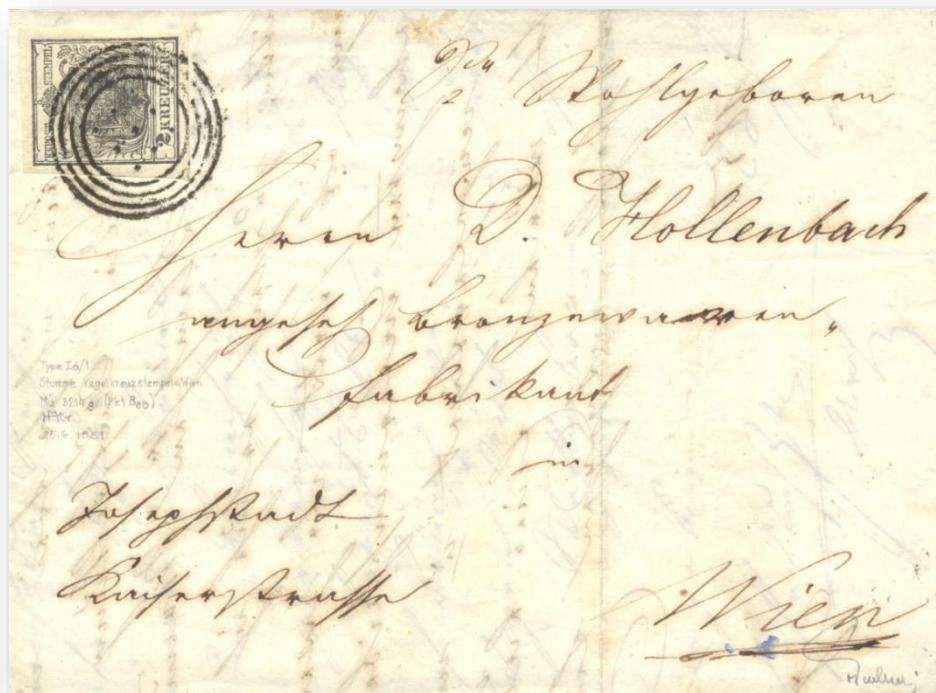 STEMPEL
2 KREUZER
Wohlgeboren
Herrn D. Hollenbach
angeseh Bronzewaaren
Fabrikant
in
Josephstadt
Kaiserstrasse
Wien
Type Ia/1
Stumme Wien
Mü 3214g (Pkt 800)